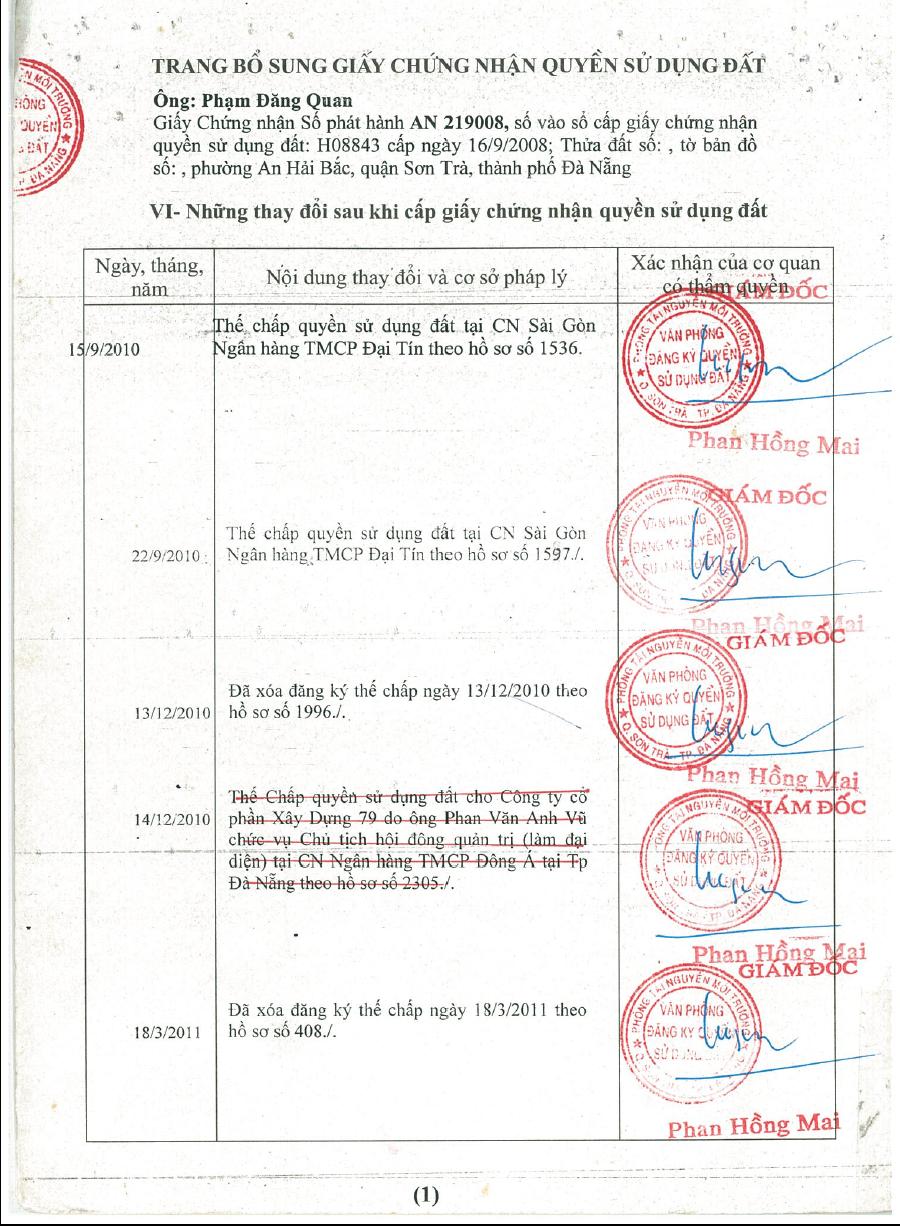 TRANG BỔ SUNG GIẤY CHỨNG NHẬN QUYỀN SỬ DỤNG ĐẤT
Ông: Phạm Đăng Quan
Giấy Chứng nhận Số phát hành AN 219008, số vào sổ cấp giấy chứng nhận
quyền sử dụng đất: H08843 cấp ngày 16/9/2008; Thửa đất số: , tờ bản đồ
số: , phường An Hải Bắc, quận Sơn Trà, thành phố Đà Nẵng
VI- Những thay đổi sau khi cấp giấy chứng nhận quyền sử dụng đất
Ngày, tháng,
năm
Nội dung thay đổi và cơ sở pháp lý
Xác nhận của cơ quan
có thẩm quyền
15/9/2010
Thế chấp quyền sử dụng đất tại CN Sài Gòn
Ngân hàng TMCP Đại Tín theo hồ sơ số 1536.
GIÁM ĐỐC
PHÒNG TÀI NGUYÊN MÔI TRƯỜNG
VĂN PHÒNG
ĐĂNG KÝ QUYỀN
SỬ DỤNG ĐẤT
Q. SƠN TRÀ TP. ĐÀ NẴNG
Phan Hồng Mai
22/9/2010
Thế chấp quyền sử dụng đất tại CN Sài Gòn
Ngân hàng TMCP Đại Tín theo hồ sơ số 1597./.
GIÁM ĐỐC
PHÒNG TÀI NGUYÊN MÔI TRƯỜNG
VĂN PHÒNG
ĐĂNG KÝ QUYỀN
SỬ DỤNG ĐẤT
Phan Hồng Mai
13/12/2010
Đã xóa đăng ký thế chấp ngày 13/12/2010 theo
hồ sơ số 1996./.
GIÁM ĐỐC
PHÒNG TÀI NGUYÊN MÔI TRƯỜNG
VĂN PHÒNG
ĐĂNG KÝ QUYỀN
SỬ DỤNG ĐẤT
Q. SƠN TRÀ TP. ĐÀ NẴNG
Phan Hồng Mai
14/12/2010
Thế Chấp quyền sử dụng đất cho Công ty cổ
phần Xây Dựng 79 do ông Phan Văn Anh Vũ
chức vụ Chủ tịch hội đông quản trị (làm đại
diện) tại CN Ngân hàng TMCP Đông Á tại Tp
Đà Nẵng theo hồ sơ số 2305./.
GIÁM ĐỐC
VĂN PHÒNG
ĐĂNG KÝ QUYỀN
Phan Hồng Mai
18/3/2011
Đã xóa đăng ký thế chấp ngày 18/3/2011 theo
hồ sơ số 408./.
GIÁM ĐỐC
VĂN PHÒNG
ĐĂNG KÝ QUYỀN
Phan Hồng Mai
(1)